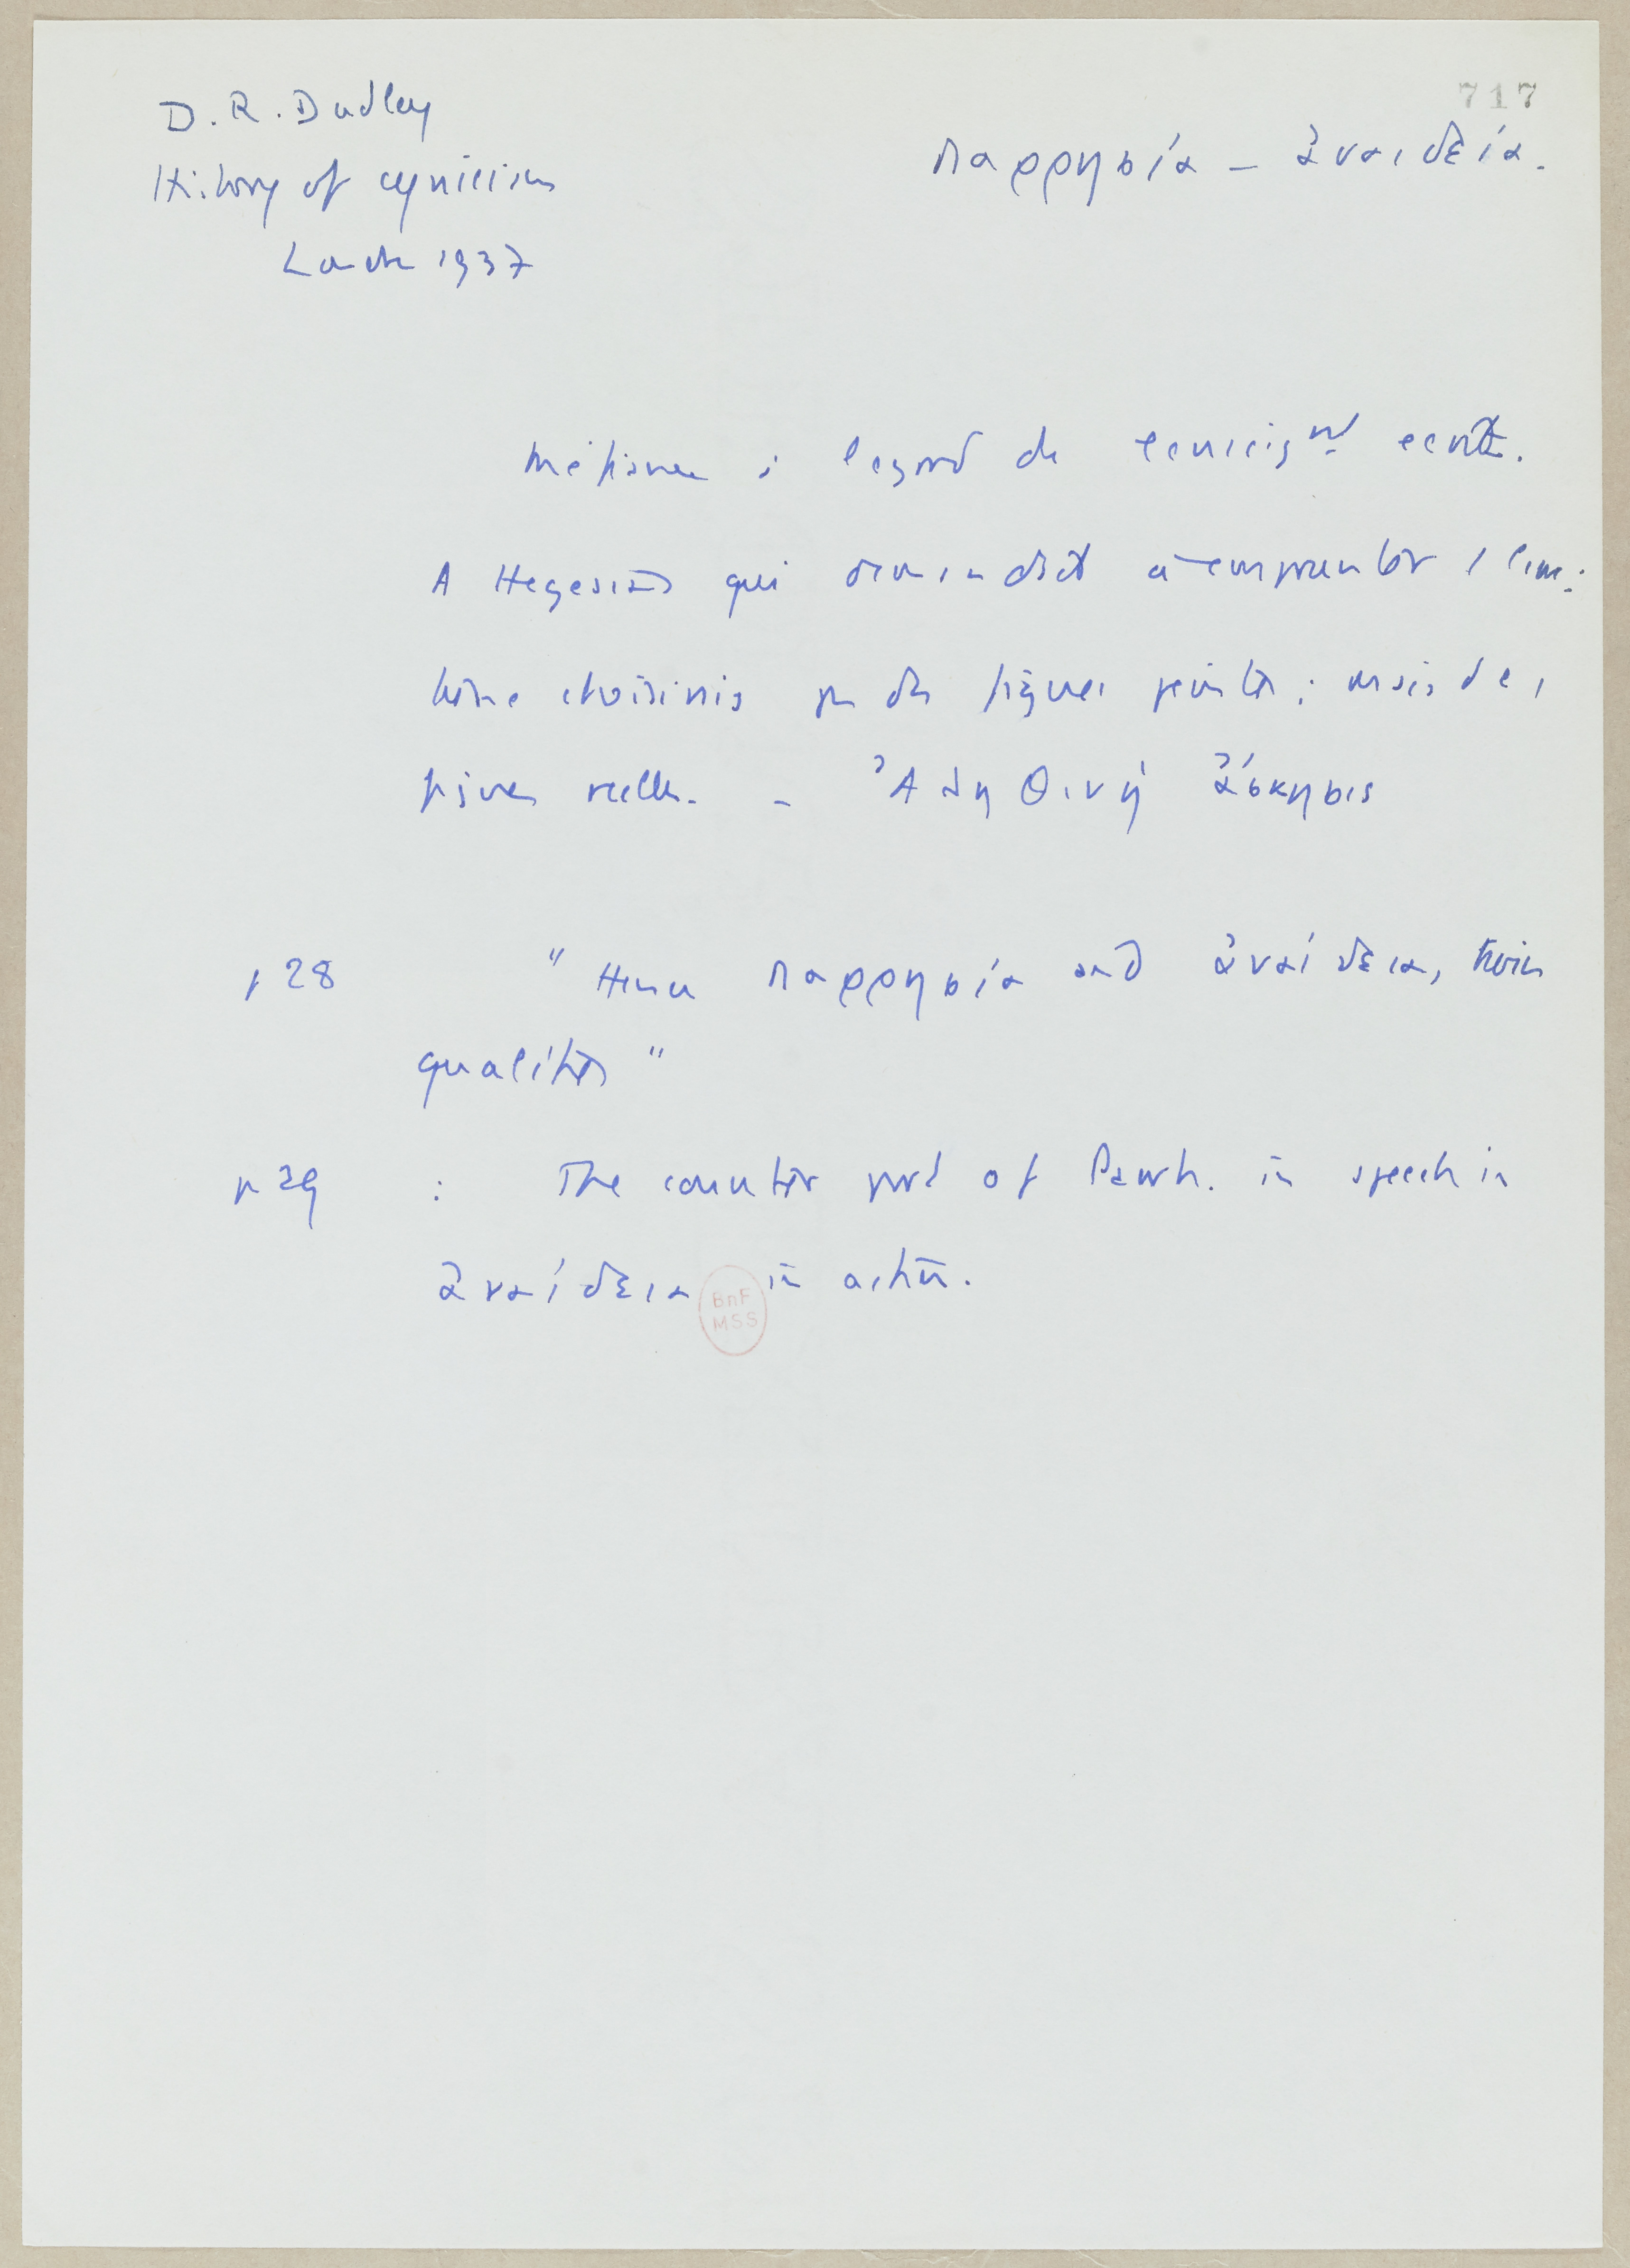 717
D. R. Dudley
History of cynicism
London 1937
παρρησία – ἀναιδεία.
Méfiance à l'égard de l'enseignt écrit.
A Hegesias qui demandait à emprunter 1 livre :
choisis pas des figues peintes ; mais des
figues réelles. – Ἀληθινή ἄσκησις
p 28 "Hence παρρησία and ἀναίδεια, twin
qualities"
p 29 : The counterpart of Parrh. in speech is
ἀναίδεια in action.
BnF
MSS